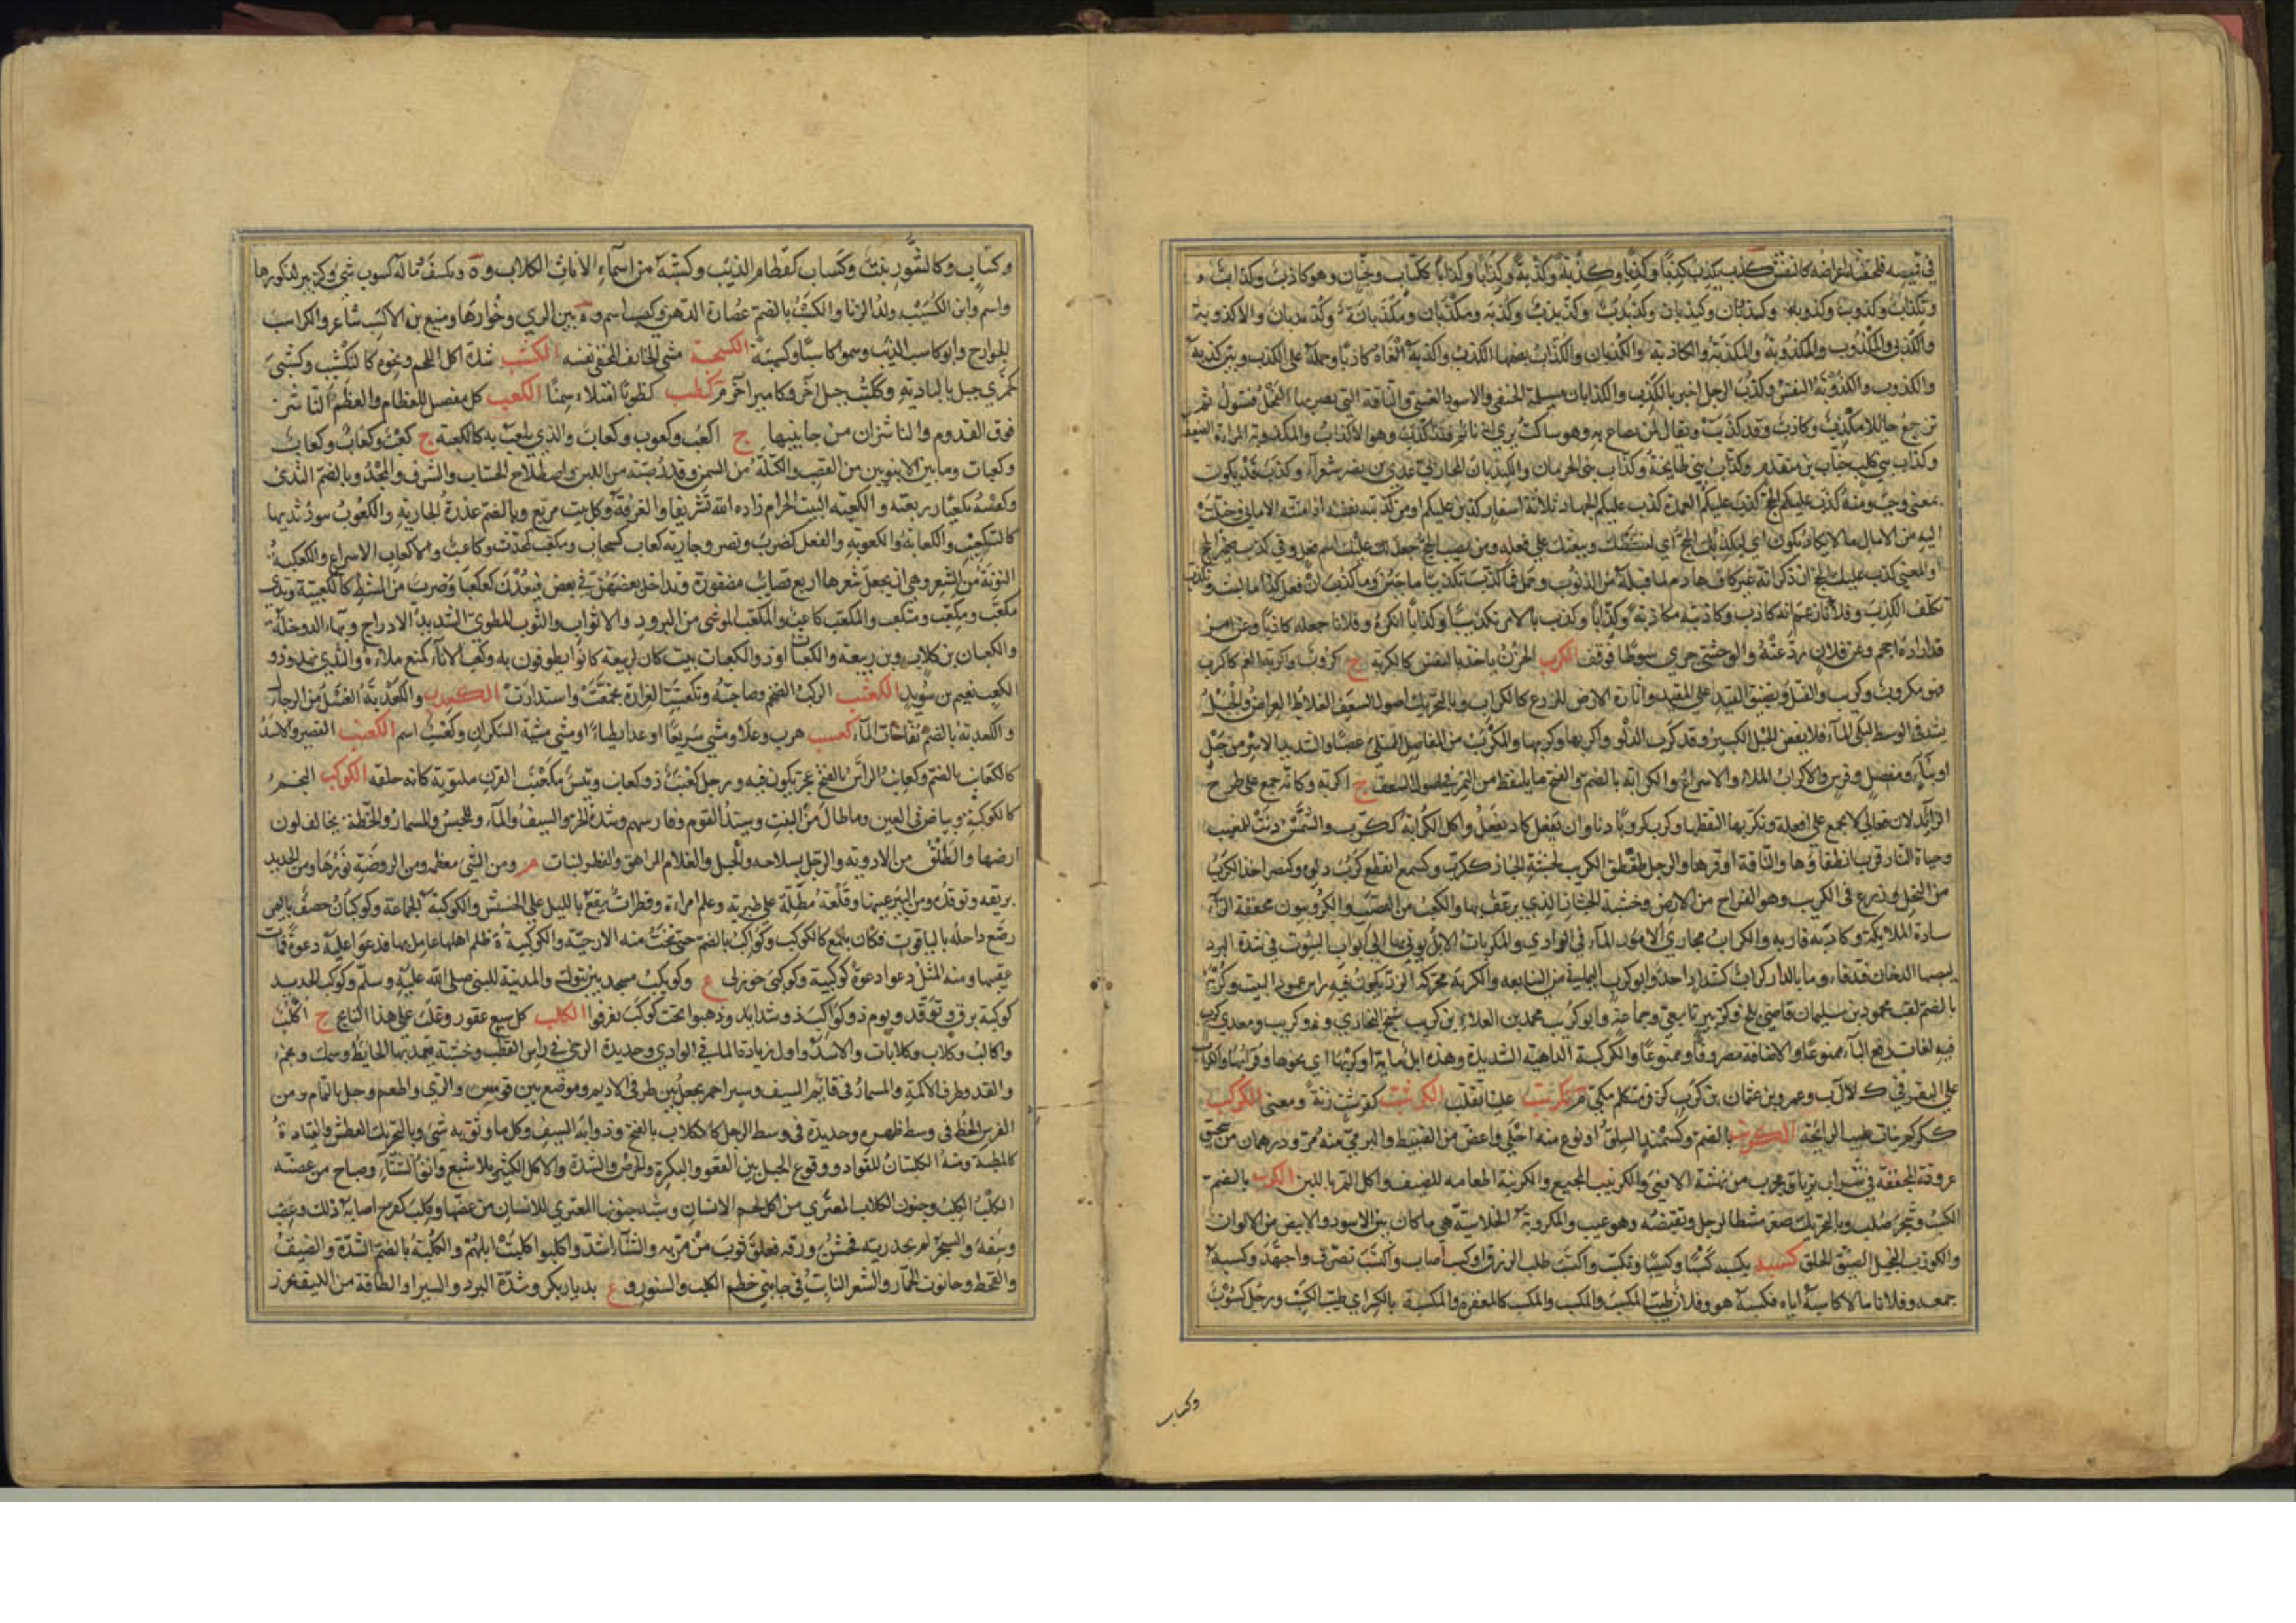 في قميصه فلحقته اعراضه كانفتق كذب يكذب كذبا وكذبا وكذبة وكذبة وكذابا وكذابا ككتاب وجنان وهو كاذب وكذاب
وتكذاب وكذوب وكذوبة وكذبان وكيذبان وكيذبان وكذبذب وكذبذب وكذبة ومكذبان ومكذبانة وكذبذبان والاكذوبة
والكذبى والمكذوب والمكذوبة والمكذبة والكاذبة والكذبان والكذاب بضمها الكذب واكذبه الفاه كاذبا وحمله على الكذب وبين كذبه
والكذوب والكذوبة النفس وكذب الرجل اخبر بالكذب والكذابان مسيلمة الحنفي والاسود العنسي والناقة التي يضربها الفحل فتشول ثم
ترجع حائلا مكذب وكاذب وقد كذبت ويقال لمن يصاح به وهو ساكت يري انه نائم قد اكذب وهو الاكذاب والمكذوبة المراة الضعيفة
وكذاب بني كلب خباب بن منقذ وكذاب بني طابخة وكذاب بني الحرماز والكيذبان المحاربي عدي بن نصر شعراء وكذب قد يكون
بمعنى وجب ومنه كذب عليكم الحج كذب عليكم العمرة كذب عليكم الجهاد ثلاثة اسفار كذبن عليكم او من كذبته نفسه اذا منته الاماني وخيلت
اليه من الامال ما لا يكاد يكون اي ليكذبك الحج اي لينشطك ويبعثك على فعله ومن نصب الحج جعل عليك اسم فعل وفي كذب ضمير الحج
او المعنى كذب عليك الحج ان ذكر انه غير كاف هادم لما قبله من الذنوب وحمل فما كذب تكذيبا ما جبن وما كذب ان فعل كذا ما لبث وتكذب
تكلف الكذب وفلانا زعم انه كاذب وكاذبه مكاذبة وكذابا وكذب بالامر تكذيبا وكذابا انكره وفلانا جعله كاذبا وعن امر
قد اراده احجم وعن فلان رد عنه والوحشي جرى شوطا فوقف الكرب الحزن ياخذ بالنفس كالكربة ج كروب وكربه الغم فاكترب
فهو مكروب وكريب والفتل وتضييق القيد على المقيد واثارة الارض للزرع كالكراب وبالتحريك اصول السعف الغلاظ العراض والحبل
يشد في الوسط ليلي الماء فلا يعفن الحبل الكبير وقد كرب الدلو واكربها وكربها والمكرب من المفاصل الممتلئ عصبا والشديد الاسر من حبل
او بناء ومفصل وفرس والاكراب الملء والاسراع والكرابة بالضم والفتح ما يلتقط من التمر في اصول السعف ج اكربة وكانه جمع على طرح
الزائد لان فعالا لا يجمع على افعلة وتكربها التقطها وكرب كروبا دنا وان يفعل كاد يفعل واكل الكرابة ككرب والشمس دنت للمغيب
وحياة النار قرب انطفاؤها والناقة اوقرها والرجل طقطق الكريب لخشبة الخباز ككرب وكسمع انقطع كرب دلوه وكنصر اخذ الكرب
من النخل وزرع في الكريب وهو القراح من الارض وخشبة الخباز الذي يرغف بها والكعب من القصب والكروبيون مخففة الراء
سادة الملائكة وكاربه قاربه والكراب مجاري الماء في الوادي والمكربات الابل يوتى بها الى ابواب البيوت في شدة البرد
ليصيبها الدخان فتدفأ وما بالدار كراب كشداد احد وابو كرب اليماني من التبابعة والكربة محركة الزر يكون فيه راس عمود البيت وكربة
بالضم لقب محمود بن سليمان قاضي بلخ وكزبير تابعي وجماعة وابو كريب محمد بن العلاء بن كريب شيخ البخاري وذو كريب ومعدي كرب
فيه لغات رفع الباء ممنوعا والاضافة مصروفا وممنوعا والكريبة الداهية الشديدة وهذه ابل مائة او كربها اي نحوها وقرابتها والكراب
على البقر في ك ل ب وعمرو بن عثمان بن كرب كزفر متكلم مكي م تكرتب علينا تقلب الكرثب كقرشب زنة ومعنى الكركب
كركم نبات طيب الرائحة الكرنب بالضم وكسمند السلق او نوع منه احلى واغض من القنبيط والبري منه مر ودرهمان من سحيق
عروقه المجففة في شراب ترياق مجرب من نهشة الافعى والكرنيب المجيع والكرنبة اطعامه للضيف واكل التمر باللبن الكزب بالضم
الكسب وشجر صلب وبالتحريك صغر مشط الرجل وتقبضه وهو عيب والمكزوبة الخلاسية هي ما كان بين الاسود والابيض من الالوان
والكوزب البخيل الضيق الخلق كسبه يكسبه كسبا وكسبا وتكسب واكتسب طلب الرزق او كسب اصاب واكتسب تصرف واجتهد وكسبه
جمعه وفلانا مالا كاكسبه اياه فكسبه هو وفلان طيب المكسب والمكسب والمكسبة كالمغفرة والكسبة بالكسر اي طيب الكسب ورجل كسوب
وكساب
وكساب وكالتنور نبت وكساب كقطام الذئب وكسبة من اسماء الاناث الكلاب وة وبكسف وما له كسوب شئ وكزبير لذكورها
واسم وابن الكسيب ولد الزنا والكسب بالضم عصارة الدهن وكيسب اسم وة بين الري وخوارها ومنيع بن الاكسب شاعر والكواسب
الجوارح وابو كاسب الذئب وسموا كاسبا وكيسبة الكسحبة مشي الخائف المخفي نفسه الكشب شدة اكل اللحم ونحوه كالتكشيب وكشبى
كجمزي جبل بالبادية وككشب جبل اخر وكامير اخر م كظب كظوبا امتلاء سمنا الكعب كل مفصل للعظام والعظم الناشز
فوق القدم والناشزان من جانبيها ج اكعب وكعوب وكعاب والذي يلعب به كالكعبة ج كعب وكعاب وكعاب
وكعبات وما بين الانبوبين من القصب والكتلة من السمن وقدر صبة من اللبن واصطلاح الحساب والشرف والمجد وبالضم الثدي
وكعبه تكعيبا ربعته والكعبة البيت الحرام زاده الله تشريفا والغرفة وكل بيت مربع وبالضم عذرة الجارية والكعوب نهود ثدييها
كالتكعيب والكعابة والكعوبة والفعل كضرب ونصر وجارية كعاب كسحاب ومكعب كمحدث وكاعب والاكعاب الاسراع والكعكبة
النونة من الشعر وهي ان يجعل شعرها اربع قصائب مضفورة ويداخل بعضهن في بعض فيعدن كعكبا وضرب من المشط كالكعكبية وثدي
مكعب ومكعب ومتكعب والمكعب كاعب والمكعب الموشى من البرود والاثواب والثوب المطوي الشديد الادراج وبهاء الدوخلة
والكعبان بن كلاب وبن ربيعة والكعاب او ذو الكعبات بيت كان لربيعة كانوا يطوفون به وكعب الاناء كمنع ملاءه والثدي نهد وذو
الكعب نعيم بن سويد الكعثب الركب الضخم وصاحبته وتكعثبت الغرارة تجمعت واستدارت الكعدب والكعدبة الفسل من الرجال
والكعدبة بالضم نفاخات الماء كعسب هرب وعدا ومشى سريعا او عدا بطياء او مشى مشية السكران وكعسب اسم الكعنب القصير والاسد
كالكعانب بالضم وكعانب الراس بالفتح عجر تكون فيه ورجل كعنب ذو كعانب وتيس مكعنب القرن ملتويه كانه حلقة الكوكب النجم
كالكوكبة وبياض في العين وما طال من النبت وسيد القوم وفارسهم وشدة الحر والسيف والماء والمحبس والمسمار والخطة يخالف لون
ارضها والطلق من الادوية والرجل بسلاحه والجبل والغلام المراهق والفطر لنبات م ومن الشئ معظمه ومن الروضة نورها ومن الحديد
بريقه وتوقده ومن البئر عينها وقلعة مطلة على طبرية وعلم امراة وقطرات تقع بالليل على الحشيش والكوكبة الجماعة وكوكبان حصن باليمن
رصع داخله بالياقوت فكان يلمع كالكوكب وكواكب بالضم جبل تنحت منه الارحية والكوكبية ة ظلم اهلها عامل بها فدعوا عليه دعوة فمات
عقبها ومنه المثل دعوا دعوة كوكبية وكوكبى خوزلى ع وكوكب مسجد بين تبوك والمدينة للنبي صلى الله عليه وسلم وكوكب الحديد
كوكبة برق وتوقد ويوم ذو كواكب ذو شدايد وذهبوا تحت كوكب تفرقوا الكلب كل سبع عقور وغلب على هذا النابح ج اكلب
واكالب وكلاب وكلابات والاسد واول زيادة الماء في الوادي وحديدة الرحى في راس القطب وخشبة يعمد بها الحايط وسمك ونجم
والقد وطرف الاكمة والمسمار في قائم السيف وسير احمر يجعل بين طرفي الاديم وموضع بين قومس والري واطم وجبل باليمامة ومن
الفرس الخط في وسط ظهره وحديدة في وسط الرحل كالكلاب بالفتح وذؤابة السيف وكل ما وثق به شئ وبالتحريك العطش والقيادة
كالمكلبة ومنه الكلتبان للقواد ووقوع الحبل بين القعو والبكرة والحرص والشدة والاكل الكثير بلا شبع وانف الشتاء وصياح من عضه
الكلب الكلب وجنون الكلاب المعتري من اكل لحم الانسان وشبه جنونها المعتري للانسان من عضها وكلب كفرح اصابه ذلك وغضب
وسفه والشجر لم يجد ريه فخشن ورقه فعلق ثوب من مر به والشتاء اشتد واكلبوا كلبت ابلهم والكلبة بالضم الشدة والضيق
والقحط وحانوت الخمار والشعر النابت في جانبي خطم الكلب والسنور وع بديار بكر وشدة البرد والسير او الطاقة من الليف يخرز